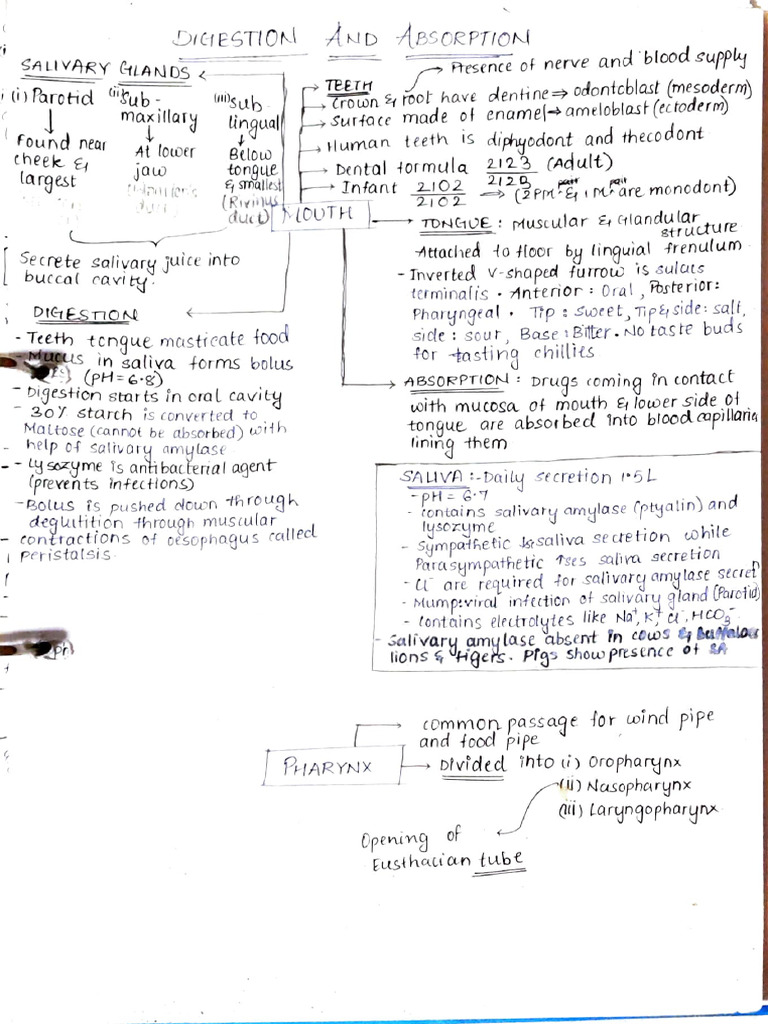 DIGESTION AND ABSORPTION
SALIVARY GLANDS
(i) Parotid
Found near
cheek &
largest
(ii) Sub-
maxillary
At lower
jaw
(iii) Sub-
lingual
Below
tongue
& smallest
(Rivinus
duct)
Secrete salivary juice into
buccal cavity.
MOUTH
TEETH
Presence of nerve and blood supply
Crown & root have dentine ⇒ odontoblast (mesoderm)
Surface made of enamel → ameloblast (ectoderm)
Human teeth is diphyodont and thecodont
Dental formula 2123/2123 (Adult)
Infant 2102/2102 ⇒ (2PM pair & 1 M pair are monodont)
TONGUE : Muscular & Glandular
structure
Attached to floor by linguial frenulum
- Inverted V-shaped furrow is sulcus
terminalis. Anterior: Oral, Posterior:
Pharyngeal. Tip: Sweet, Tip & side: salt,
side: sour, Base: Bitter. No taste buds
for tasting chillies
ABSORPTION : Drugs coming in contact
with mucosa of mouth & lower side of
tongue are absorbed into blood capillaries
lining them
DIGESTION
- Teeth tongue masticate food
- Mucus in saliva forms bolus
(pH = 6.8)
- Digestion starts in oral cavity
- 30% starch is converted to
Maltose (cannot be absorbed) with
help of salivary amylase
- Lysozyme is antibacterial agent
(prevents infections)
- Bolus is pushed down through
deglutition through muscular
contractions of oesophagus called
peristalsis.
SALIVA :- Daily secretion 1.5 L
- pH = 6.7
- contains salivary amylase (ptyalin) and
lysozyme
- Sympathetic ↓s saliva secretion while
Parasympathetic ↑ses saliva secretion
- Cl⁻ are required for salivary amylase secret
- Mump: viral infection of salivary gland (Parotid)
- Contains electrolytes like Na⁺, K⁺ Cl⁻, HCO₃⁻
- Salivary amylase absent in cows & Buffaloes
lions & tigers. Pigs show presence of SA
PHARYNX
common passage for wind pipe
and food pipe
Divided into (i) Oropharynx
(ii) Nasopharynx
(iii) Laryngopharynx
Opening of
Eusthacian tube